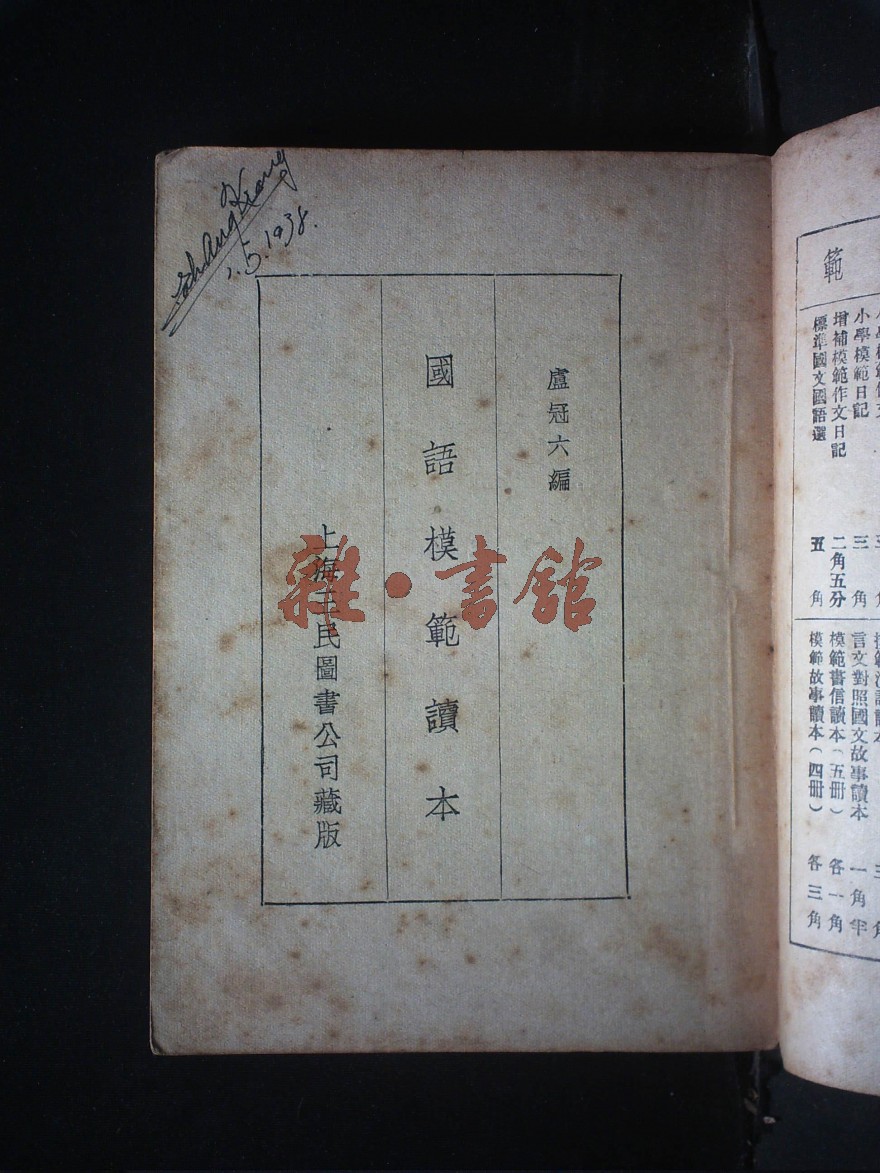 1.5.1938.
盧冠六編
國語模範讀本
上海三民圖書公司藏版
雜·書館
範
小學模範日記 三角
增補模範作文日記 二角五分
標準國文國語選 五角
言文對照國文故事讀本 一角半
模範書信讀本(五册) 各一角
模範故事讀本(四册) 各三角